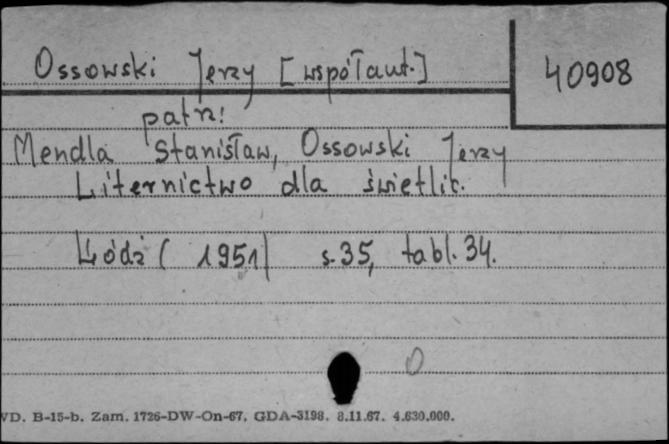 Ossowski Jerzy [współaut.]
40908
patrz:
Mendla Stanisław, Ossowski Jerzy
Liternictwo dla świetlic.
Łódź ( 1951) s. 35, tabl. 34.
0
VD. B-15-b. Zam. 1726-DW-On-67. GDA-3198. 8.11.67. 4.630.000.